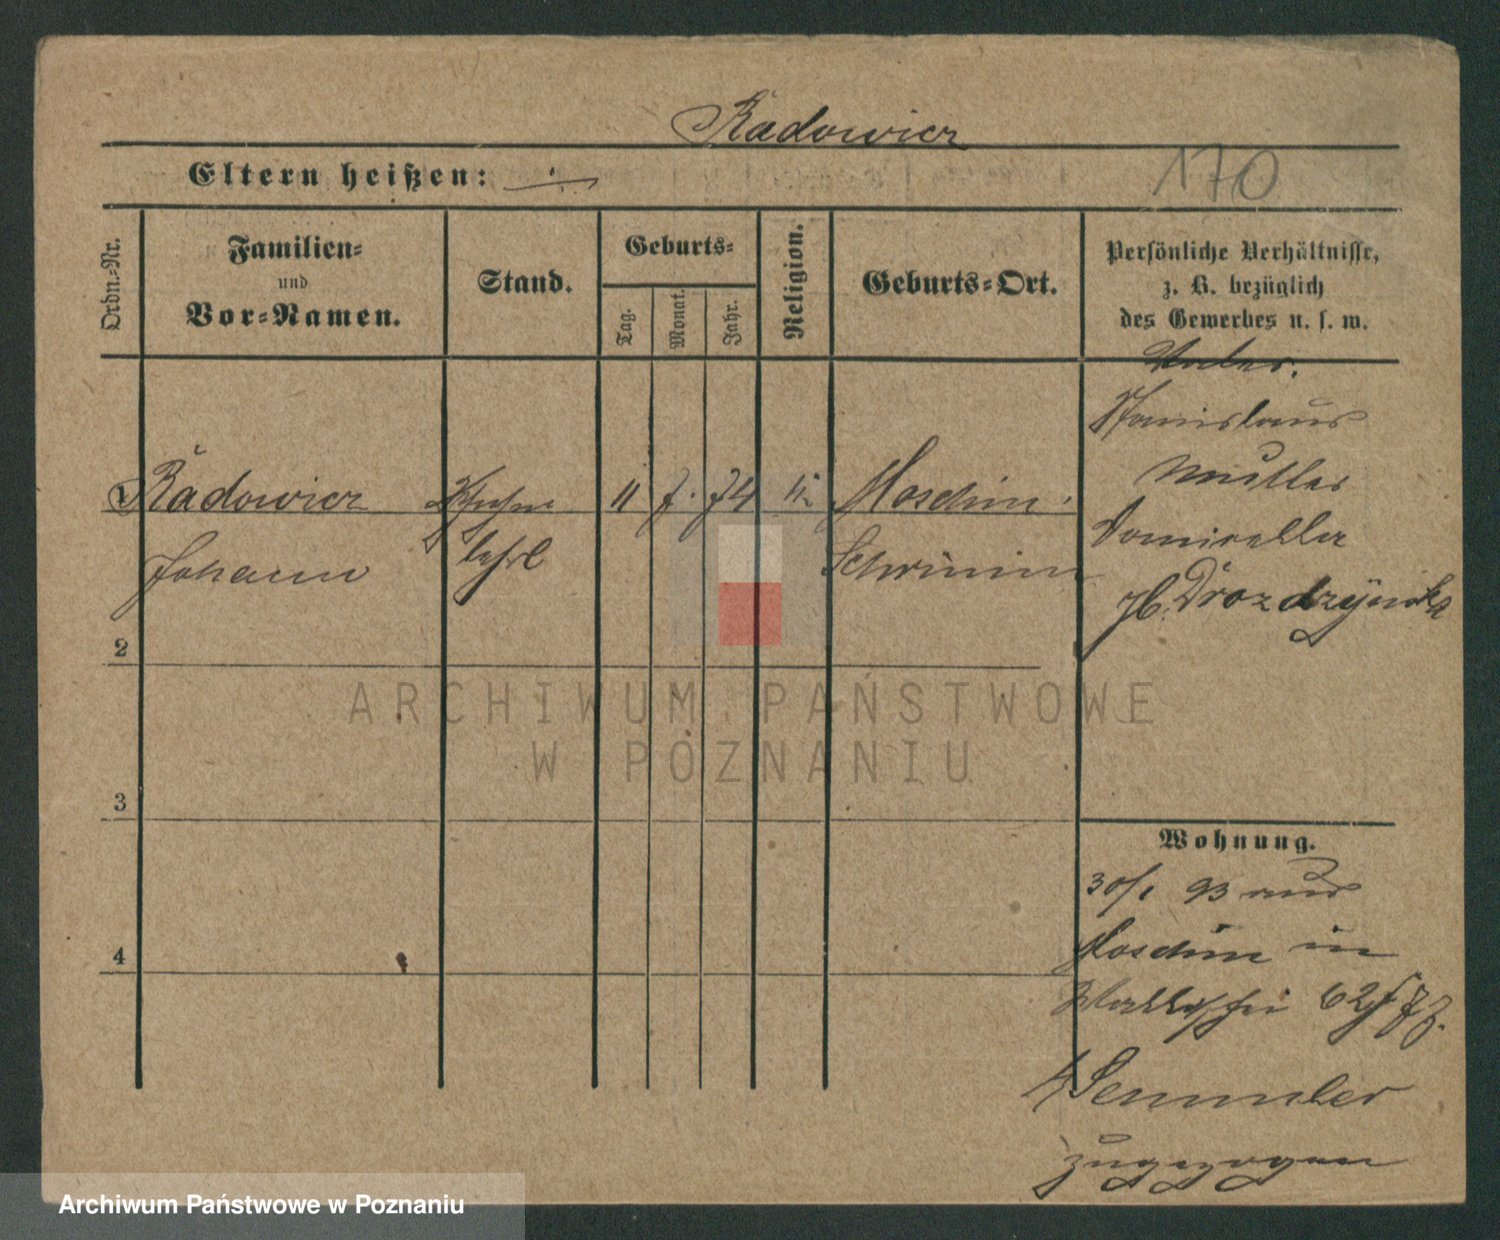 Radowicz
Eltern heißen: ./.
170
Ordn.-Nr.
Familien-
und
Vor-Namen.
Stand.
Geburts-
Tag.
Monat.
Jahr.
Religion.
Geburts-Ort.
Persönliche Verhältnisse,
z. B. bezüglich
des Gewerbes u. s. w.
1 Radowicz
Johann
lehrl
11 7. 74 k.
Moschin
Schrimm
2
3
4
Vater.
Stanislaus
Mutter
Domicella
gb. Drozdzynska
Wohnung.
30/1 93 aus
Moschin in
62
Semmler
zugezogen
ARCHIWUM PAŃSTWOWE
W POZNANIU
Archiwum Państwowe w Poznaniu